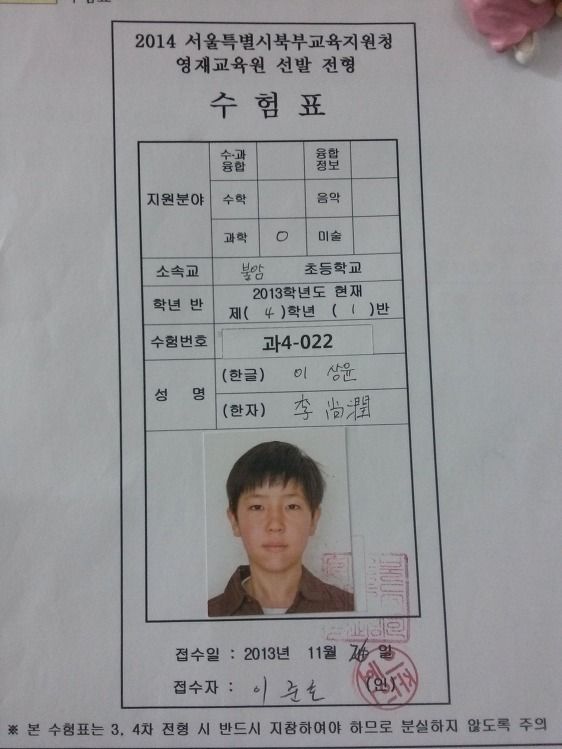 2014 서울특별시북부교육지원청
영재교육원 선발 전형
수 험 표
지원분야
수·과 융합
융합 정보
수학
음악
과학 O 미술
소속교 불암 초등학교
학년 반 2013학년도 현재
제( 4 )학년 ( 1 )반
수험번호 과4-022
성 명 (한글) 이 상윤
(한자) 李 尚潤
접수일 : 2013년 11월 26 일
접수자 : 이 준호 (인)
※ 본 수험표는 3, 4차 전형 시 반드시 지참하여야 하므로 분실하지 않도록 주의